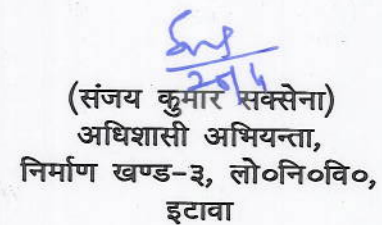 (संजय कुमार सक्सेना)
अधिशासी अभियन्ता,
निर्माण खण्ड-३, लो०नि०वि०,
इटावा